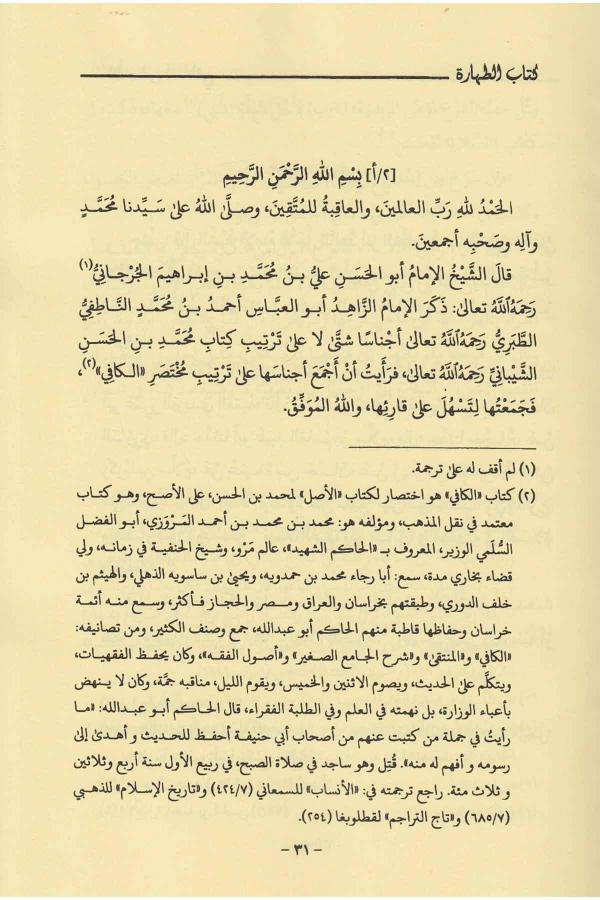 كتاب الطهارة
[٢/أ] بِسْمِ اللهِ الرَّحْمَنِ الرَّحِيمِ
الحَمْدُ للهِ رَبِّ العالمِينَ، والعاقِبةُ للمُتَّقِينَ، وصلَّى اللهُ على سَيِّدنا مُحَمَّدٍ
وآلِه وصَحْبِه أجمعينَ.
قالَ الشَّيْخُ الإمامُ أبو الحَسَنِ عليُّ بنُ مُحَمَّدِ بنِ إبراهيمَ الجُرْجانيُّ(١)
رَحِمَهُ اللَّهُ تعالى: ذَكَرَ الإمامُ الزَّاهِدُ أبو العبَّاسِ أحمدُ بنُ مُحَمَّدٍ النَّاطِفِيُّ
الطَّبَرِيُّ رَحِمَهُ اللَّهُ تعالى أجناسًا شتَّى لا على تَرْتِيبِ كِتابِ مُحَمَّدِ بنِ الحَسَنِ
الشَّيْبانيِّ رَحِمَهُ اللَّهُ تعالى، فرَأَيتُ أنْ أَجْمَعَ أجناسَها على تَرْتِيبِ مُخْتَصَرِ «الكافِي»(٢)،
فَجَمَعْتُها لِتَسْهُلَ على قارِئِها، واللهُ المُوَفِّقُ.
(١) لم أقف له على ترجمة.
(٢) كتاب «الكافي» هو اختصار لكتاب «الأصل» لمحمد بن الحسن، على الأصح، وهو كتاب
معتمد في نقل المذهب، ومؤلفه هو: محمد بن محمد بن أحمد المَرْوَزي، أبو الفضل
السُّلَمي الوزير، المعروف بـ «الحاكم الشهيد»، عالم مَرْو، وشيخ الحنفية في زمانه، ولي
قضاء بخاري مدة، سمع: أبا رجاء محمد بن حمدويه، ويحيى بن ساسويه الذهلي، والهيثم بن
خلف الدوري، وطبقتهم بخراسان والعراق ومصر والحجاز فأكثر، وسمع منه أئمة
خراسان وحفاظها قاطبة منهم الحاكم أبو عبدالله، جمع وصنف الكثير، ومن تصانيفه:
«الكافي» و«المنتقى» و«شرح الجامع الصغير» و«أصول الفقه»، وكان يحفظ الفقهيات،
ويتكلَّم على الحديث، ويصوم الاثنين والخميس، ويقوم الليل، مناقبه جمَّة، وكان لا ينهض
بأعباء الوزارة، بل نهمته في العلم وفي الطلبة الفقراء، قال الحاكم أبو عبدالله: «ما
رأيتُ في جملة من كتبت عنهم من أصحاب أبي حنيفة أحفظ للحديث و أهدىٰ إلى
رسومه و أفهم له منه». قُتِل وهو ساجد في صلاة الصبح، في ربيع الأول سنة أربع وثلاثين
و ثلاث مئة. راجع ترجمته في: «الأنساب» للسمعاني (٤٢٤/٧) و«تاريخ الإسلام» للذهبي
(٦٨٥/٧) و«تاج التراجم» لقطلوبغا (٢٥٤).
- ٣١ -